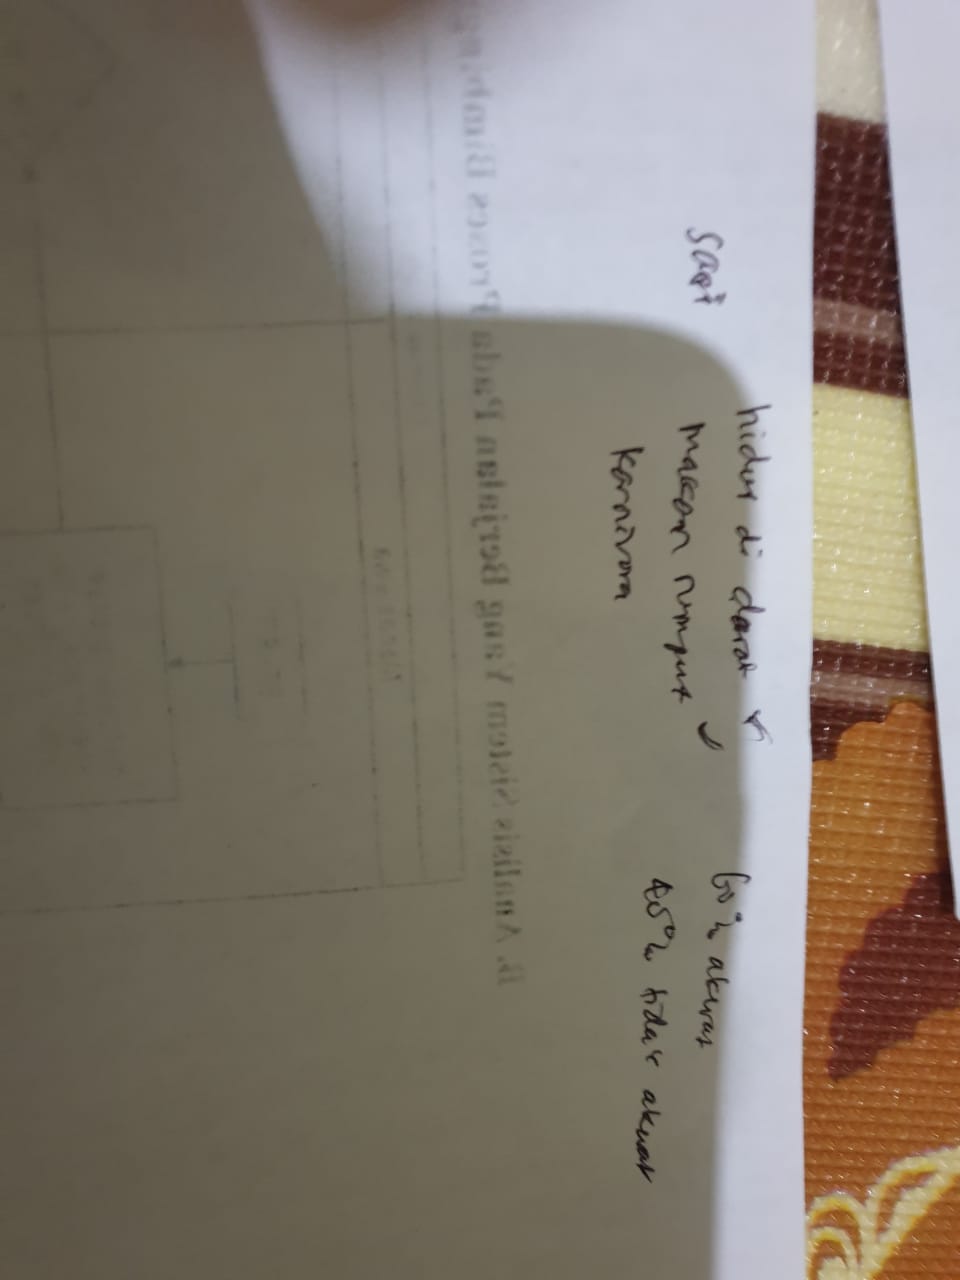 sapi
hidup di darat ✓
makan rumput ✓
karnivora
60% akurat
40% tidak akurat
b. Analisis Sistem Yang Berjalan Pada Proses Bimbing